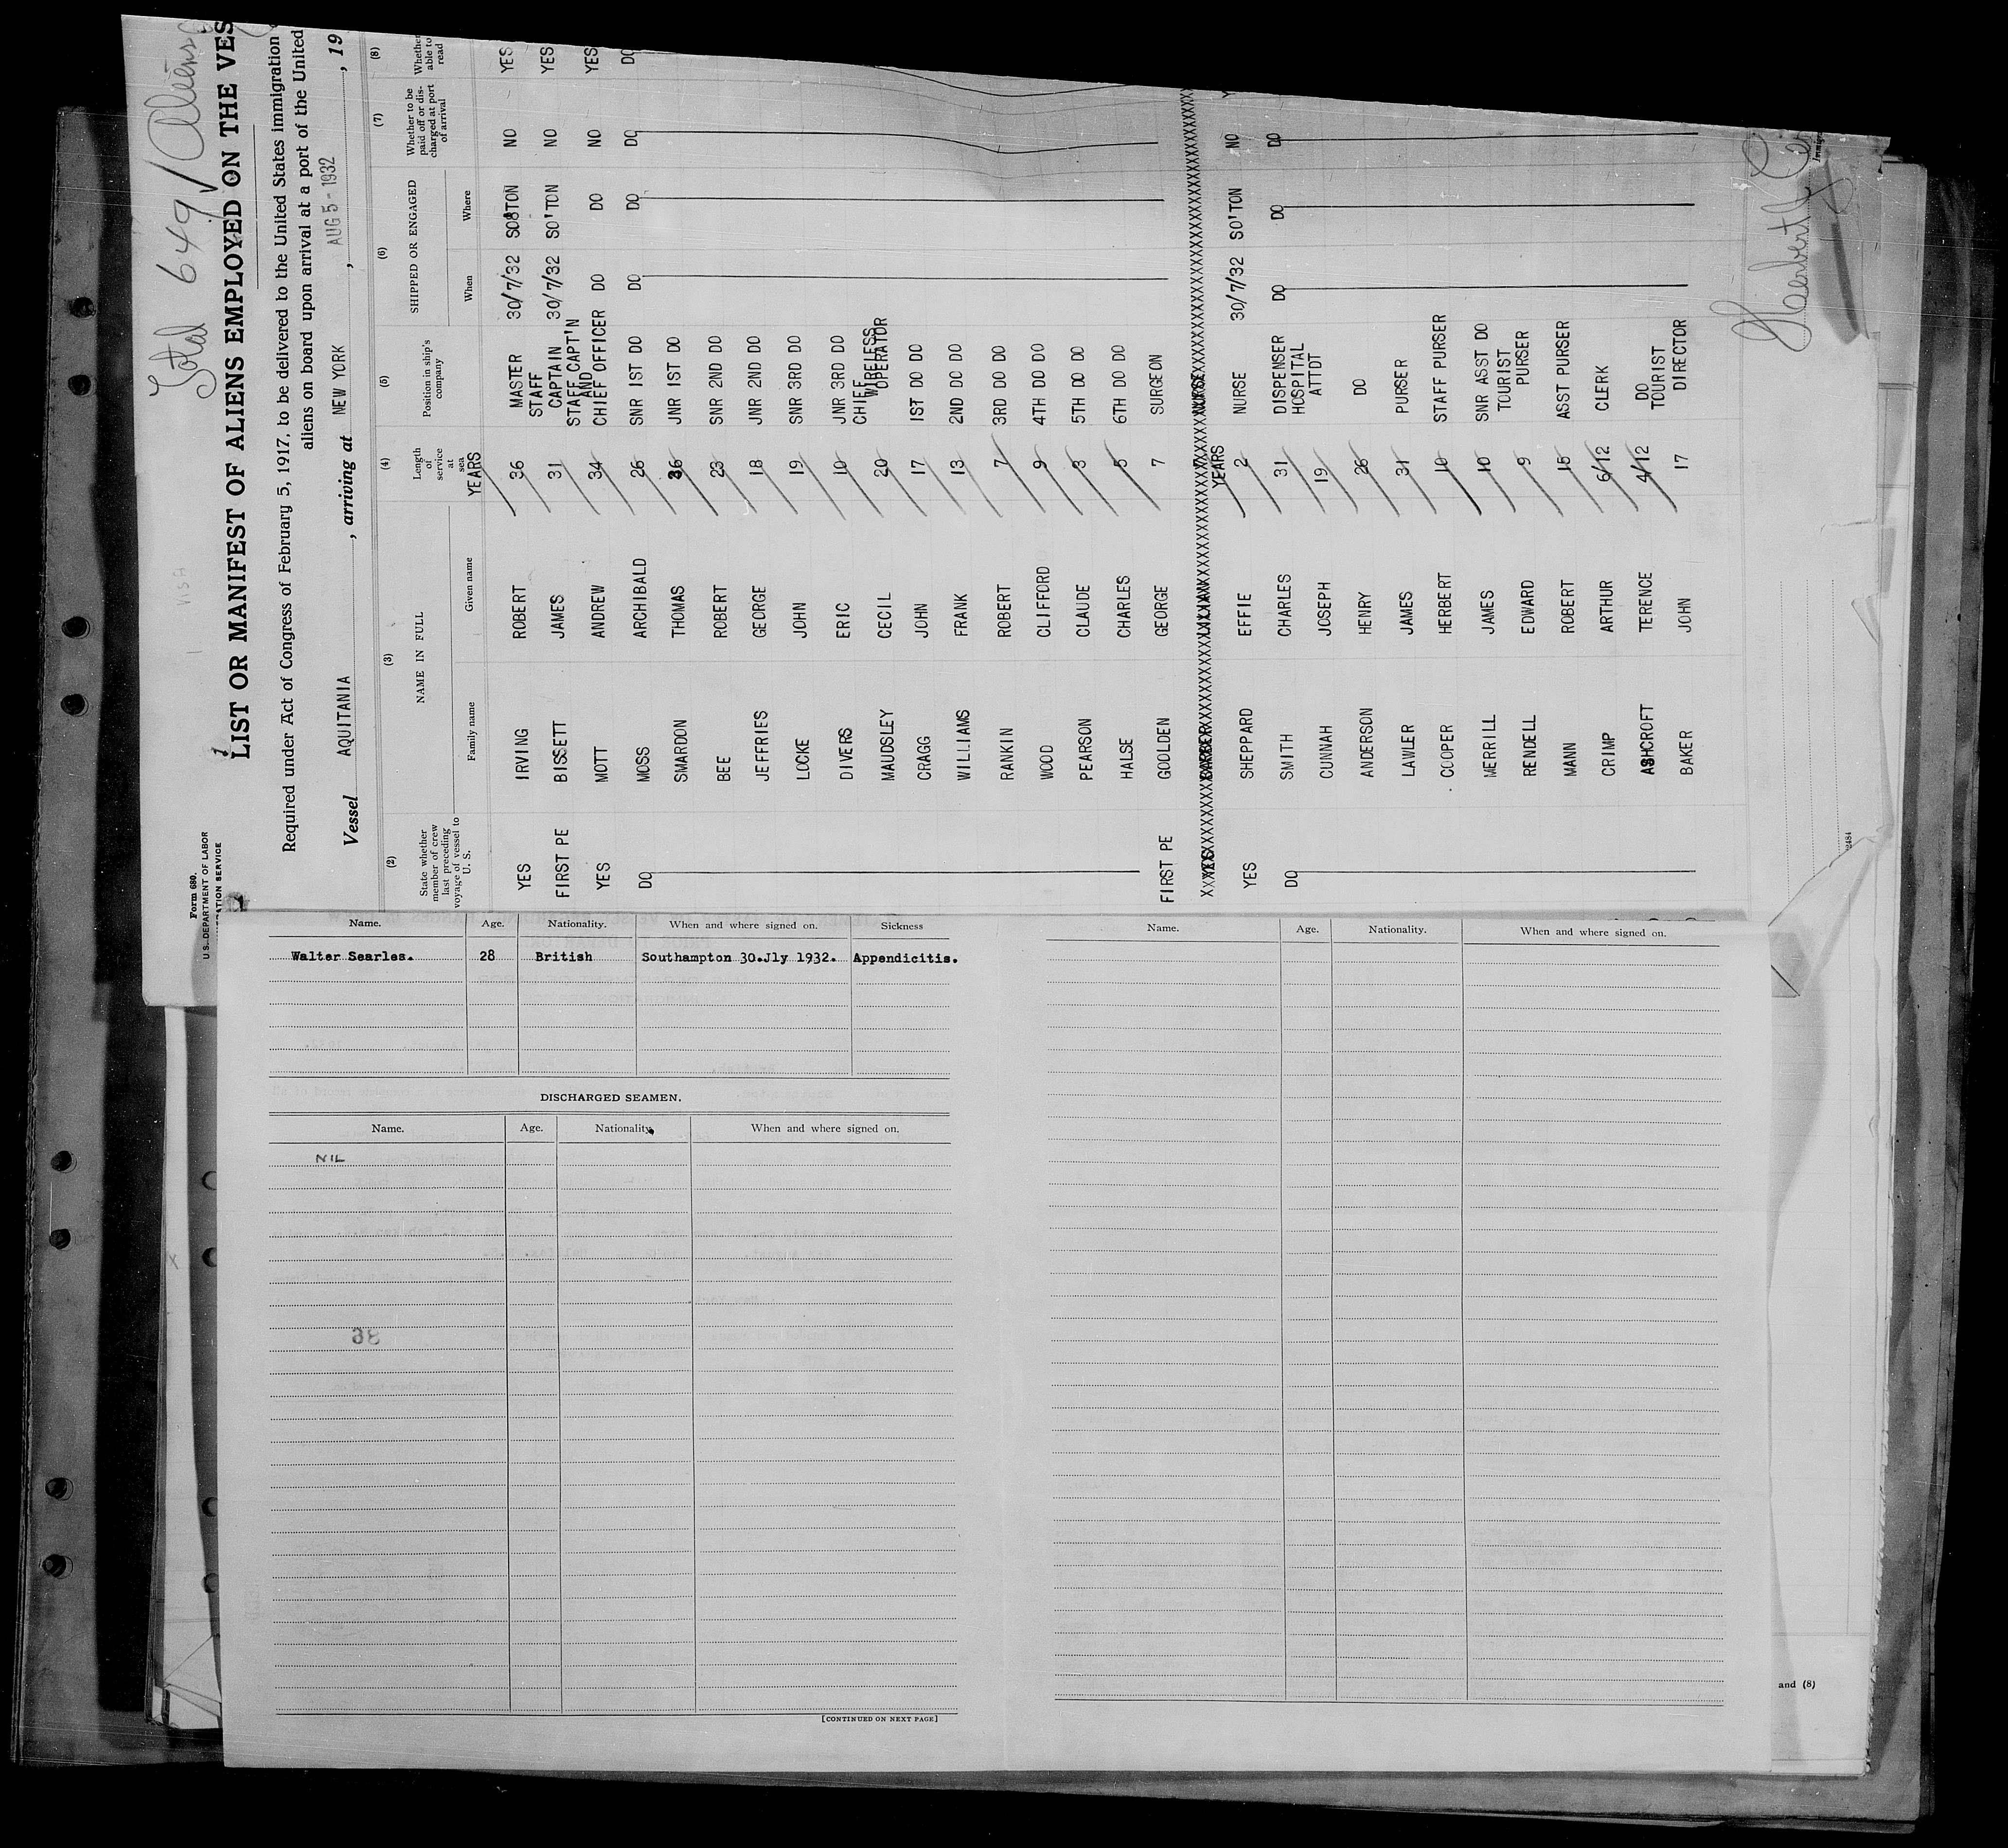 Total 649 Aliens
VISA
Form 680.
U.S. DEPARTMENT OF LABOR
IMMIGRATION SERVICE
LIST OR MANIFEST OF ALIENS EMPLOYED ON THE VES
Required under Act of Congress of February 5, 1917, to be delivered to the United States immigration
aliens on board upon arrival at a port of the United
Vessel AQUITANIA, arriving at NEW YORK, AUG 5 - 1932, 19
(2) (3) (4) (5) (6) (7) (8)
State whether member of crew last preceding voyage of vessel to U. S. NAME IN FULL Length of service at sea Position in ship's company SHIPPED OR ENGAGED Whether to be paid off or discharged at port of arrival Whether able to read
Family name Given name When Where
YEARS
YES IRVING ROBERT 36 MASTER 30/7/32 SO'TON NO YES
FIRST PE BISSETT JAMES 31 STAFF CAPTAIN 30/7/32 SO'TON NO YES
YES MOTT ANDREW 34 STAFF CAPT'N AND CHIEF OFFICER DO DO NO YES
DO MOSS ARCHIBALD 26 SNR 1ST DO DO DO DO DO
SMARDON THOMAS 36 JNR 1ST DO
BEE ROBERT 23 SNR 2ND DO
JEFFRIES GEORGE 18 JNR 2ND DO
LOCKE JOHN 19 SNR 3RD DO
DIVERS ERIC 10 JNR 3RD DO
MAUDSLEY CECIL 20 CHIEF WIRELESS OPERATOR
CRAGG JOHN 17 1ST DO DO
WILLIAMS FRANK 13 2ND DO DO
RANKIN ROBERT 7 3RD DO DO
WOOD CLIFFORD 9 4TH DO DO
PEARSON CLAUDE 3 5TH DO DO
HALSE CHARLES 5 6TH DO DO
FIRST PE GOOLDEN GEORGE 7 SURGEON
YEARS
YES SHEPPARD EFFIE 2 NURSE 30/7/32 SO'TON NO
DO SMITH CHARLES 31 DISPENSER DO DO DO
CUNNAH JOSEPH 19 HOSPITAL ATTDT
ANDERSON HENRY 26 DO
LAWLER JAMES 31 PURSER
COOPER HERBERT 10 STAFF PURSER
MERRILL JAMES 10 SNR ASST DO
RENDELL EDWARD 9 TOURIST PURSER
MANN ROBERT 15 ASST PURSER
CRIMP ARTHUR 6/12 CLERK
ASHCROFT TERENCE 4/12 DO
BAKER JOHN 17 TOURIST DIRECTOR
Name. Age. Nationality. When and where signed on. Sickness
Walter Searles. 28 British Southampton 30.Jly 1932. Appendicitis.
DISCHARGED SEAMEN.
Name. Age. Nationality. When and where signed on.
NIL
38
[CONTINUED ON NEXT PAGE]
Name. Age. Nationality. When and where signed on.
and (8)